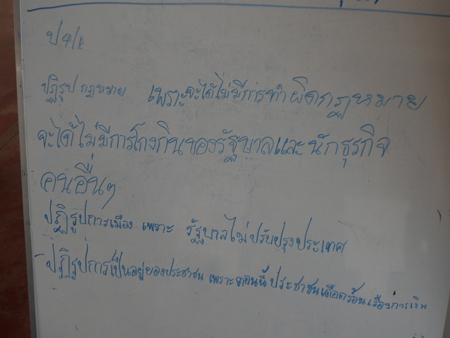 ป4/2
ปฏิรูปกฎหมาย เพราะจะได้ไม่มีการทำผิดกฎหมาย
จะได้ไม่มีการโกงกินของรัฐบาลและนักธุรกิจ
คนอื่นๆ
ปฏิรูปการเมือง เพราะ รัฐบาลไม่ปรับปรุงประเทศ
ปฏิรูปการเป็นอยู่ของประชาชน เพราะตอนนี้ประชาชนเดือดร้อนเรื่องการเงิน